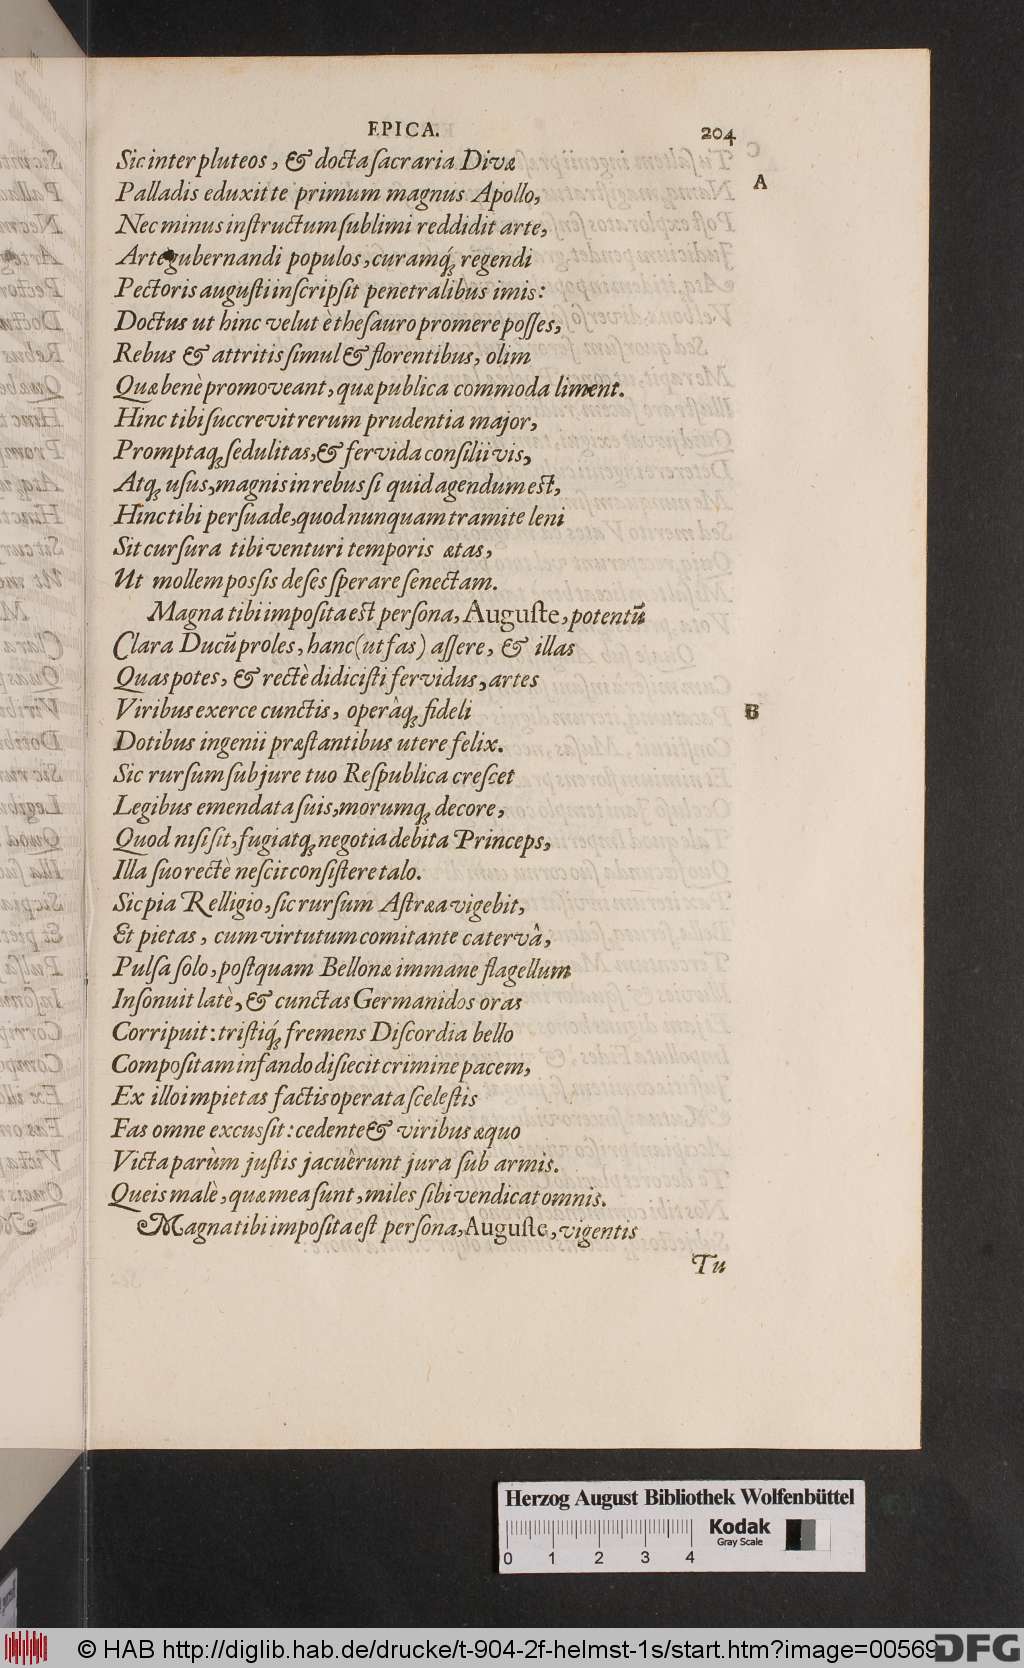 EPICA. 204
Sic inter pluteos, & docta sacraria Divæ
A
Palladis eduxit te primum magnus Apollo,
Nec minus instructum sublimi reddidit arte,
Arte gubernandi populos, curamq́; regendi
Pectoris augusti inscripsit penetralibus imis:
Doctus ut hinc velut è thesauro promere posses,
Rebus & attritis simul & florentibus, olim
Quæ benè promoveant, quæ publica commoda liment.
Hinc tibi succrevit rerum prudentia major,
Promptaq; sedulitas, & fervida consilii vis,
Atq; usus, magnis in rebus si quid agendum est,
Hinc tibi persuade, quod nunquam tramite leni
Sit cursura tibi venturi temporis ætas,
Ut mollem possis deses sperare senectam.
Magna tibi imposita est persona, Auguste, potentũ
Clara Ducũ proles, hanc (ut fas) assere, & illas
Quas potes, & rectè didicisti fervidus, artes
Viribus exerce cunctis, operàq; fideli
B
Dotibus ingenii præstantibus utere felix.
Sic rursum sub jure tuo Respublica crescet
Legibus emendata suis, morumq; decore,
Quod ni sit, fugiatq; negotia debita Princeps,
Illa suo rectè nescit consistere talo.
Sic pia Relligio, sic rursum Astræa vigebit,
Et pietas, cum virtutum comitante catervâ,
Pulsa solo, postquam Bellonæ immane flagellum
Insonuit latè, & cunctas Germanidos oras
Corripuit: tristiq́; fremens Discordia bello
Compositam infando disiecit crimine pacem,
Ex illo impietas factis operata scelestis
Fas omne excussit: cedente & viribus æquo
Victa parùm justis jacuêrunt jura sub armis.
Queis malè, quæ mea sunt, miles sibi vendicat omnis.
Magna tibi imposita est persona, Auguste, vigentis
Tu
Herzog August Bibliothek Wolfenbüttel
0 1 2 3 4
Kodak
Gray Scale
© HAB http://diglib.hab.de/drucke/t-904-2f-helmst-1s/start.htm?image=00569
DFG